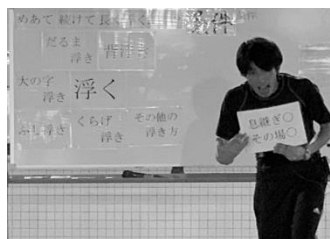 めあて 続けて長く浮く。
条件
だるま
浮き
背浮き
大の字
浮き
浮く
ふし浮き
くらげ
浮き
その他の
浮き方
息継ぎ〇
その場〇